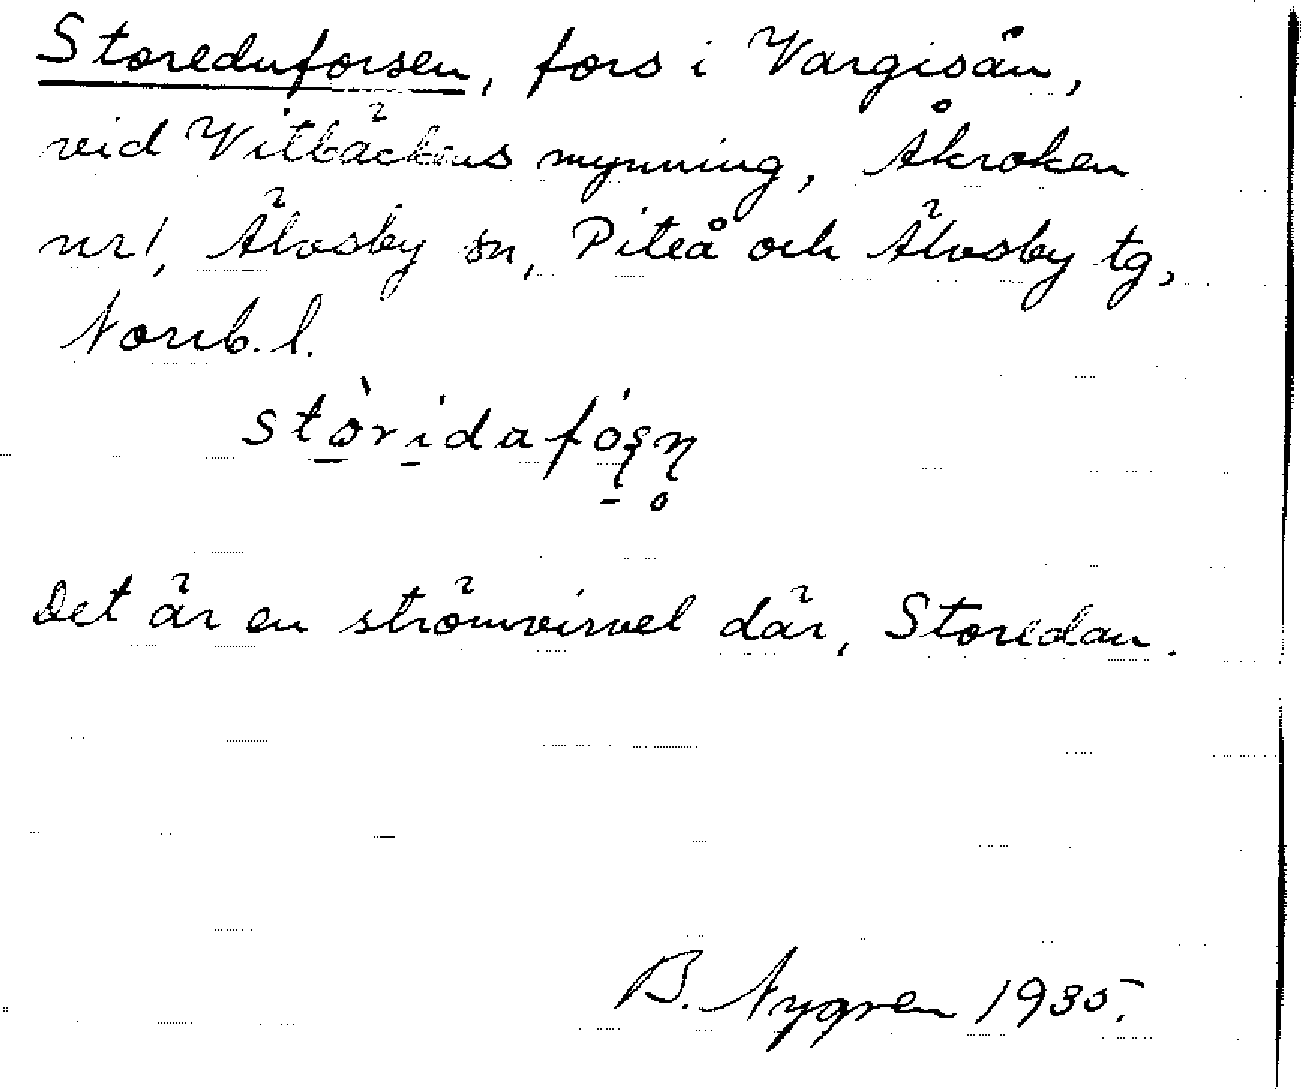 Storeduforsen, fors i Vargisån,
vid Vitbäckens mynning, Åkroken
nr 1, Älvsby sn, Piteå och Älvsby tg,
Norrb. l.
stòridafórsn
Det är en strömvirvel där, Storedan.
B. Nygren 1935.